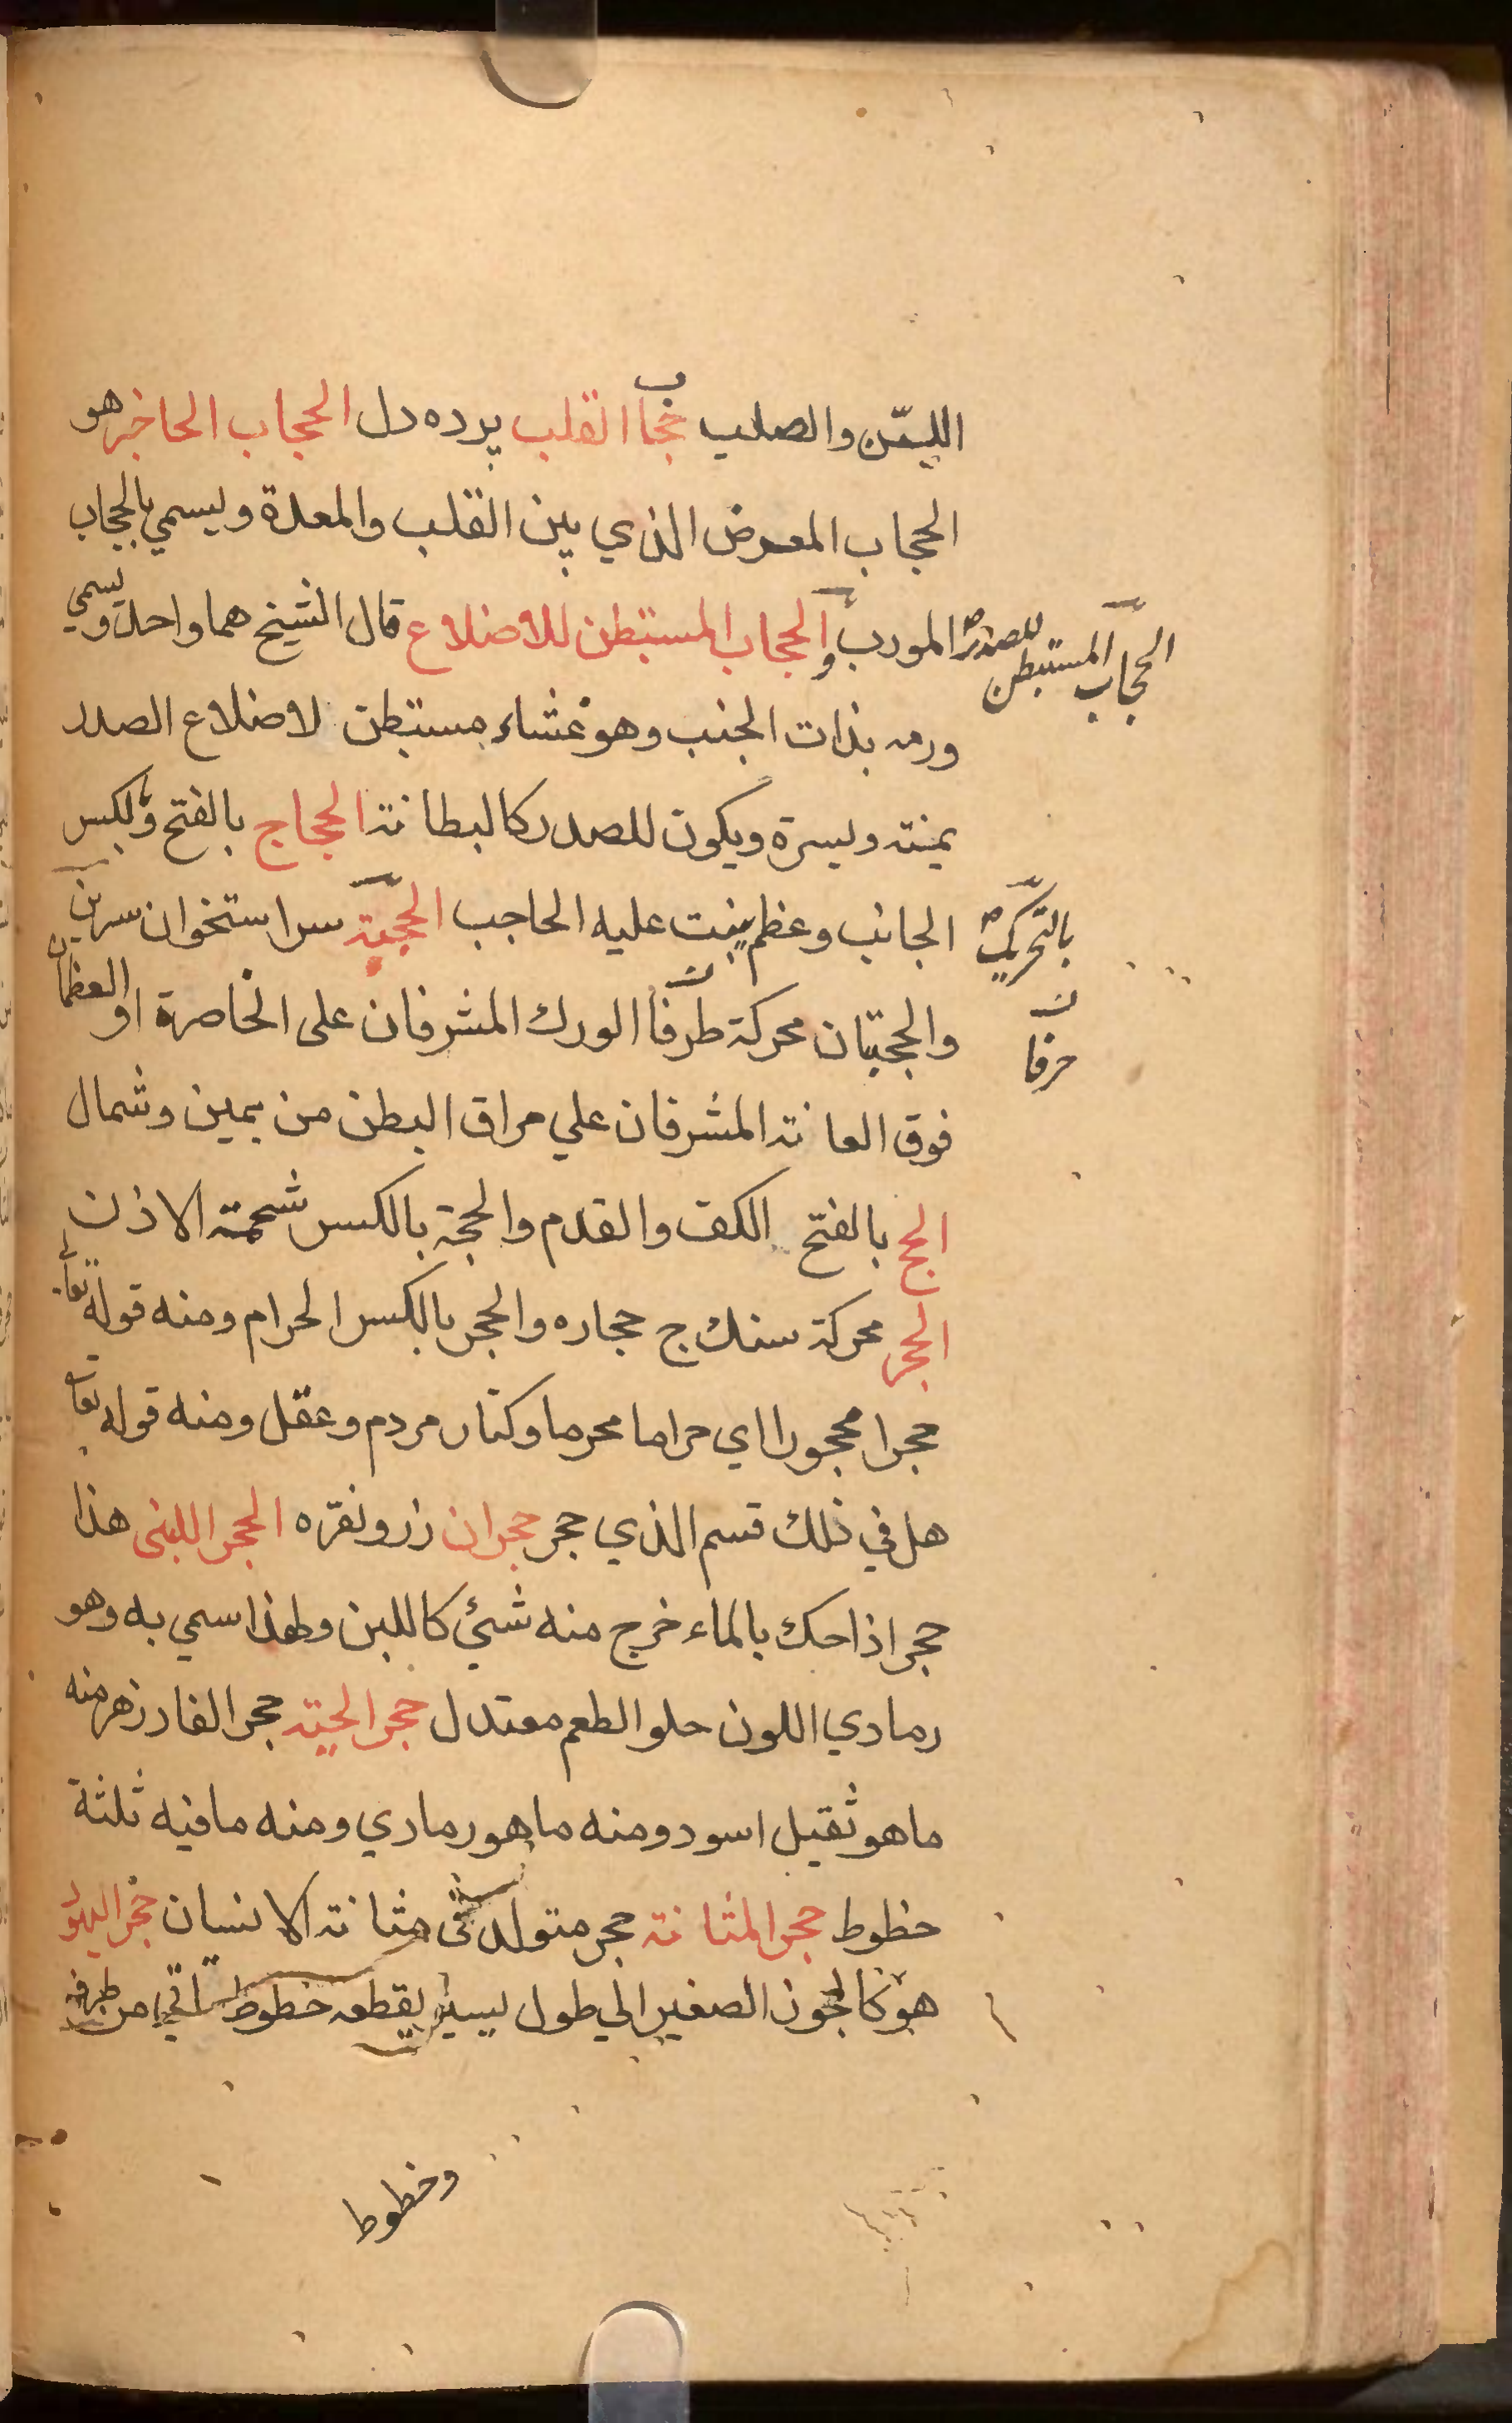 الليّن والصلب حجاب القلب پرده دل الحجاب الحاجز هو
الحجاب المعرض الذي بين القلب والمعدة ويسمي بالحجاب
المورب والحجاب المستبطن للاضلاع قال الشيخ هما واحد ويسمي
الحجاب المستبطن للصدر صح
ورمه بذات الجنب وهو غشاء مستبطن لاضلاع الصدر
يمنة ويسرة ويكون للصدر كالبطانة الحجاج بالفتح والكسر
الجانب وعظم ينبت عليه الحاجب الحجبة سر استخوان سرين
بالتحريك صح
والحجبتان محركة طرفا الورك المشرفان على الخاصرة او العظمان
حرفا
فوق العانة المشرفان علي مراق البطن من يمين وشمال
الحج بالفتح الكف والقدم والحجة بالكسر شحمة الاذن
الحجر محركة سنك ج حجاره والحجر بالكسر الحرام ومنه قوله تعا
حجرا محجورا اي حراما محرما وكنار مردم وعقل ومنه قوله تعا
هل في ذلك قسم الذي حجر حجران زر ونقره الحجر اللبنى هذا
حجر اذا حك بالماء خرج منه شئ كاللبن ولهذا سمي به وهو
رمادي اللون حلو الطعم معتدل حجر الحية حجر الفادزهر منه
ما هو ثقيل اسود ومنه ما هو رمادي ومنه ما فيه ثلثة
خطوط حجر المثانة حجر متولد في مثانة الانسان حجر اليهود
هو كالجوز الصغير الي طول يسير يقطعه خطوط تاتي من طرفه
وخطوط